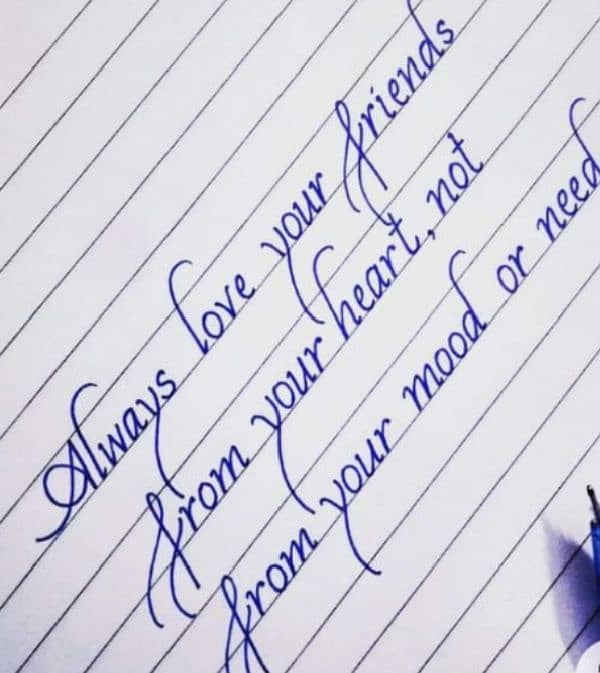 Always love your friends
from your heart, not
from your mood or need